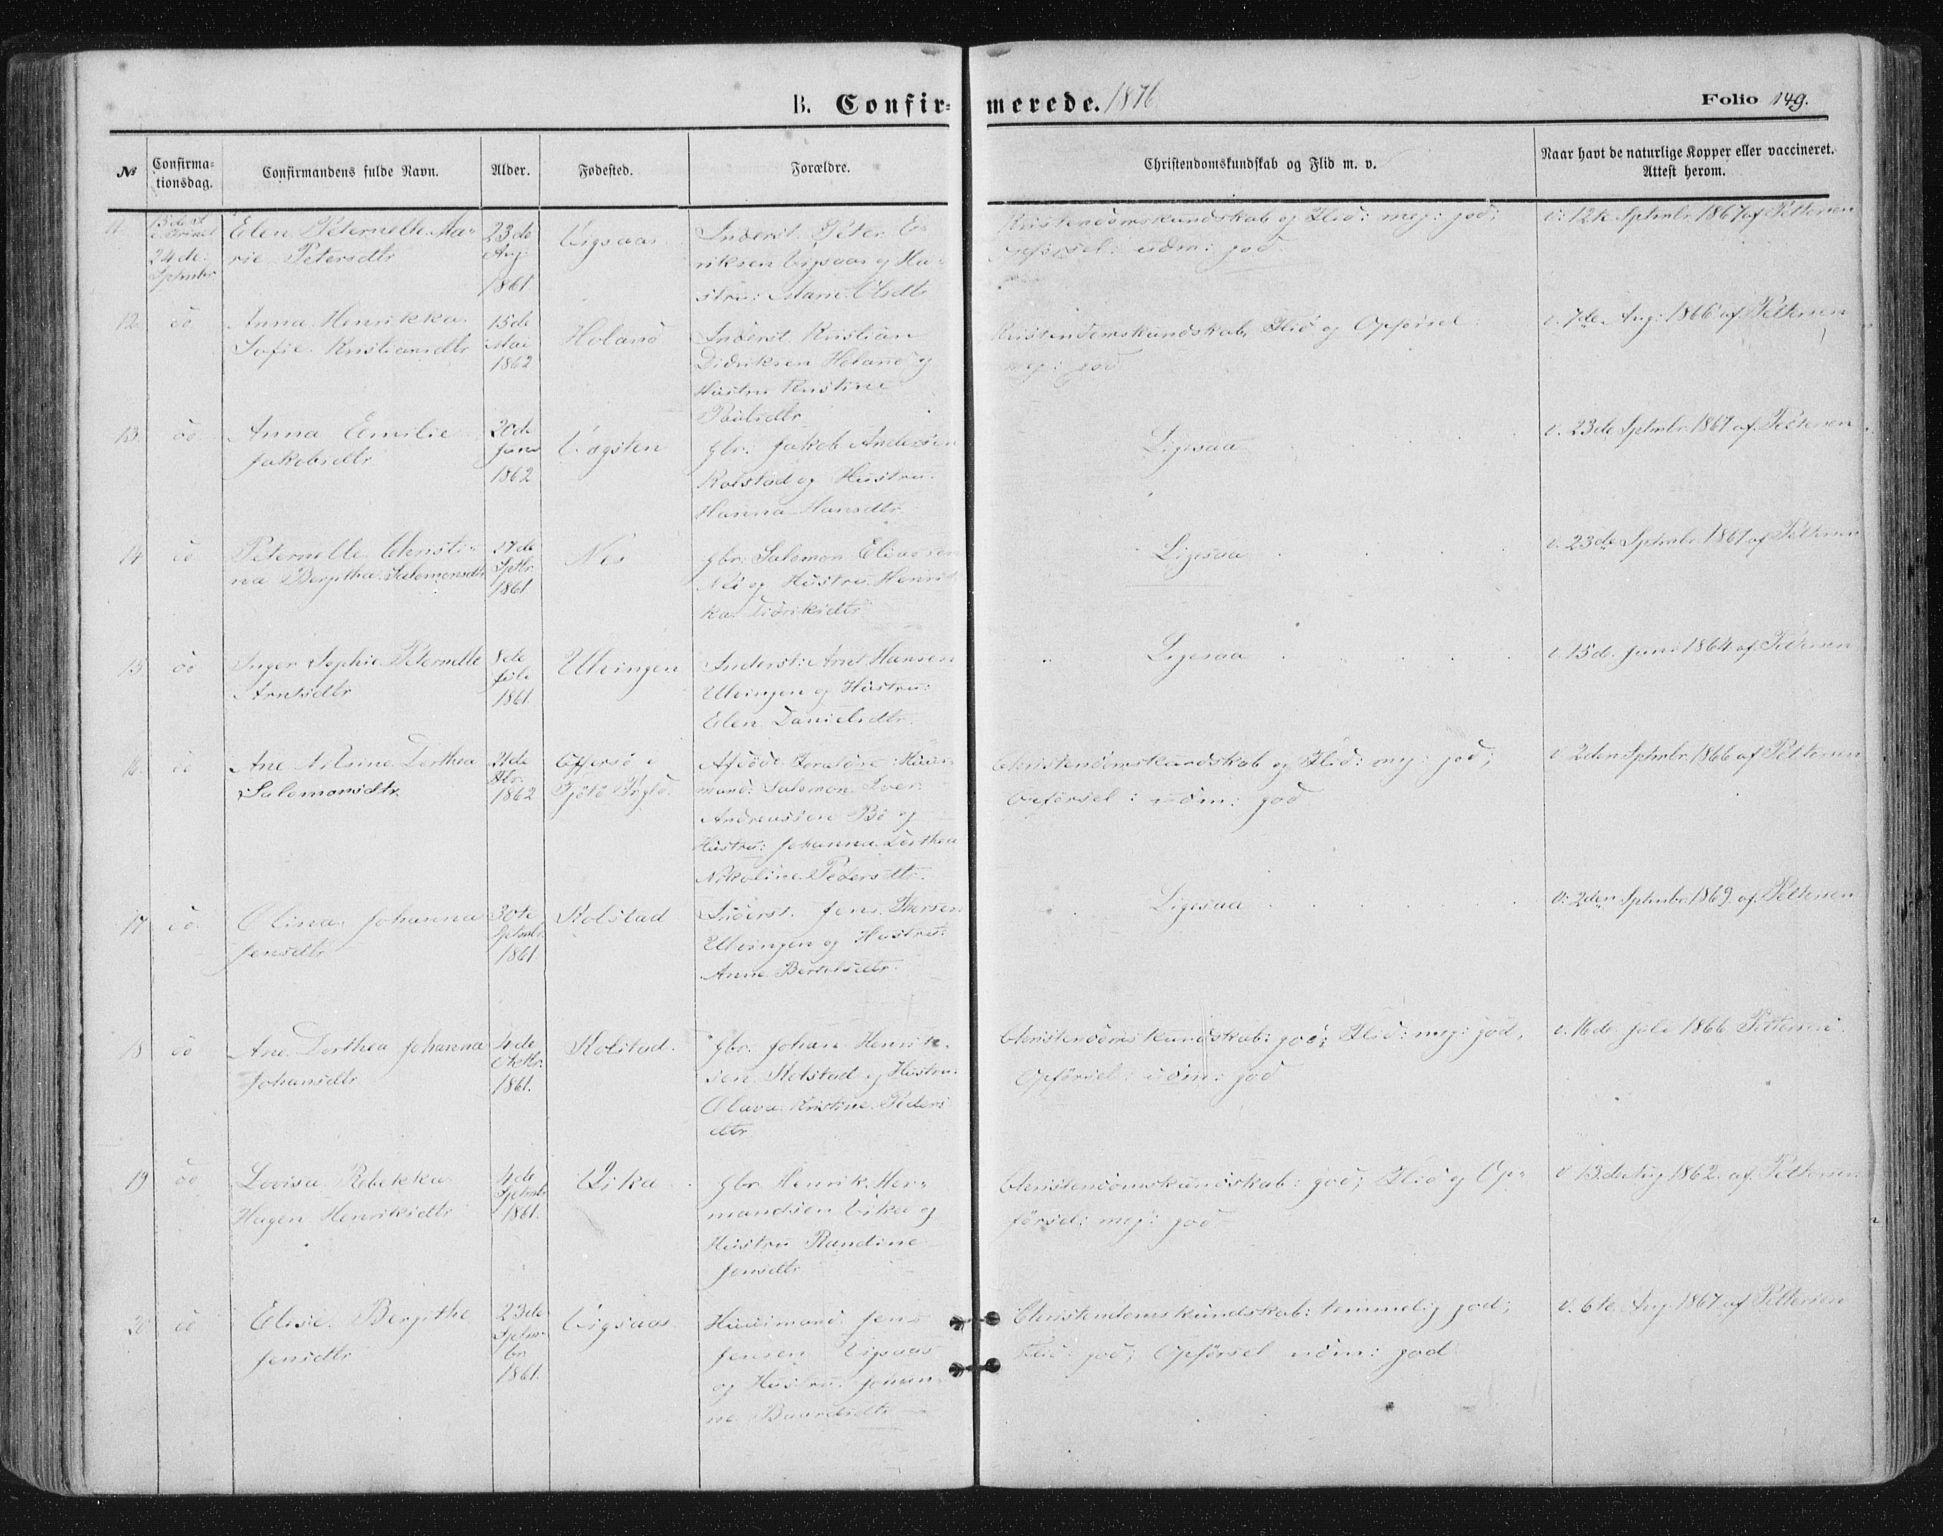 B. Confirmerede. 1876
Folio 149.
No Confirmationsdag. Confirmandens fulde Navn. Alder. Fødested. Forældre. Christendomskundskab og Flid m. v. Naar havt de naturlige Kopper eller vaccineret. Attest herom.
11.
24de Septmbr
Elen Peternelle Ma-
rie Petersdtr
23de
Aug
1861
Vigsaas
Inderst Peter E-
riksen Vigsaas og Hu-
stru: Marie Olsdtr
Kristendomskundskab og Flid: meg: god;
Opførsel: udm: god
v: 12te Sptmbr. 1867 af Pettersen
12. do
Anna Henrikka
Sofie Kristiansdtr
15de
Mai
1862
Holand
Inderst Kristian
Didriksen Holand og
Hustru Kristine
Poulsdtr
Kristendomskundskab, Flid og Opførsel
meg: god
v. 7de Aug: 1866 af Pettersen
13. do
Anna Emilie
Jakobsdtr
20de
1862
Vagsten
Gbr. Jakob Andersen
Rolstad og Hustru
Hanna Hansdtr
Ligesaa
v. 23de Sptmbr 1867 af Pettersen
14 do
Peternelle Christi-
na Bergitha Salomonsdtr
17de
Sptbr.
1861
Nes
Gbr. Salomon Eliassen
Nes og Hustru Henrik-
ka Didriksdtr
Ligesaa
v. 23de Sptmbr 1867 af Pettersen
15 do
Inger Sophie Peternelle
Arntsdtr
8de
Juli
1861
Ulvingen
Inderst: Arnt Hansen
Ulvingen og Hustru:
Elen Danielsdtr.
Ligesaa
v. 15de Juni 1864 af Pettersen
16. do
Ane Nilsine Dorthea
Salomonsdtr.
1862
Offersø i
Tjøtø Prgld.
Afdøde Forældre: Huus-
mand: Salomon Iver
Andreassen Bø og
Hustru: Johanna Dorthea
Nikoline Pedersdtr.
Christendomskundskab og Flid: meg: god;
Opførsel: udm: god
v. 2den Sptmbr. 1866 af Pettersen
17 do.
Olina Johanna
Jensdtr
30te
Sptmbr
1861.
Rolstad
Inderst. Jens Iversen
Ulvingen og Hustru:
Anne Berntsdtr.
Ligesaa
v: 2den Sptmbr. 1869. af Pettersen
18 do
Ane Dorthea Johanna
Johansdtr
4de
Oktbr.
1861.
Rolstad.
Gbr. Johan Henrik-
sen Rolstad og Hustru:
Olava Kristine Peders
dtr
Christendomskundskab: god; Flid: meg: god,
Opførsel: udm: god
v. 16de Juli 1866 Pettersen
19 do
Lovisa Rebekka
Hagen Henriksdtr
4de
Sptmbr
1861.
Vika
Gbr. Henrik Her-
mandsen Vika og
Hustru Randine
Jensdtr
Christendomskundskab: god; Flid og Op-
førsel: meg: god
v. 13de Aug 1862. af Pettersen
20 do
Elise Bergithe
Jensdtr
23de
Sptm-
br
1861.
Vigsaas
Huusmand: Jens
Jensen Vigsaas
og Hustru: Johan-
ne Baardsdtr
Christendomskundskab: temmelig god;
Flid: god; Opførsel udm: god
v. 6te Aug. 1867 af Pettersen